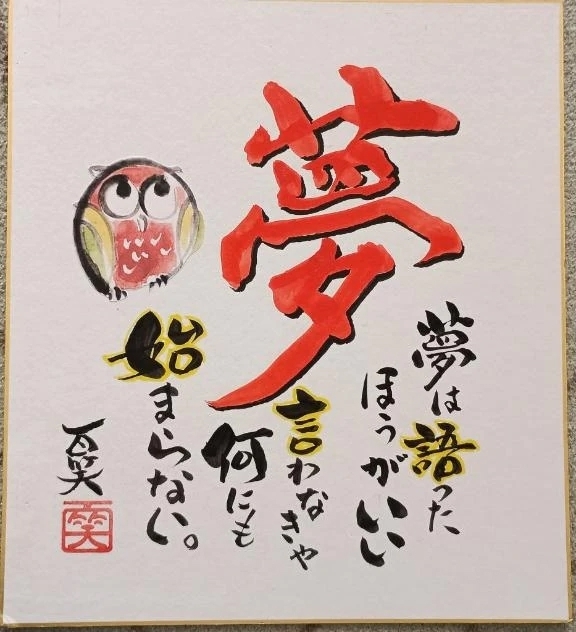 夢
夢は語った
ほうがいい
言わなきゃ
何にも
始まらない。